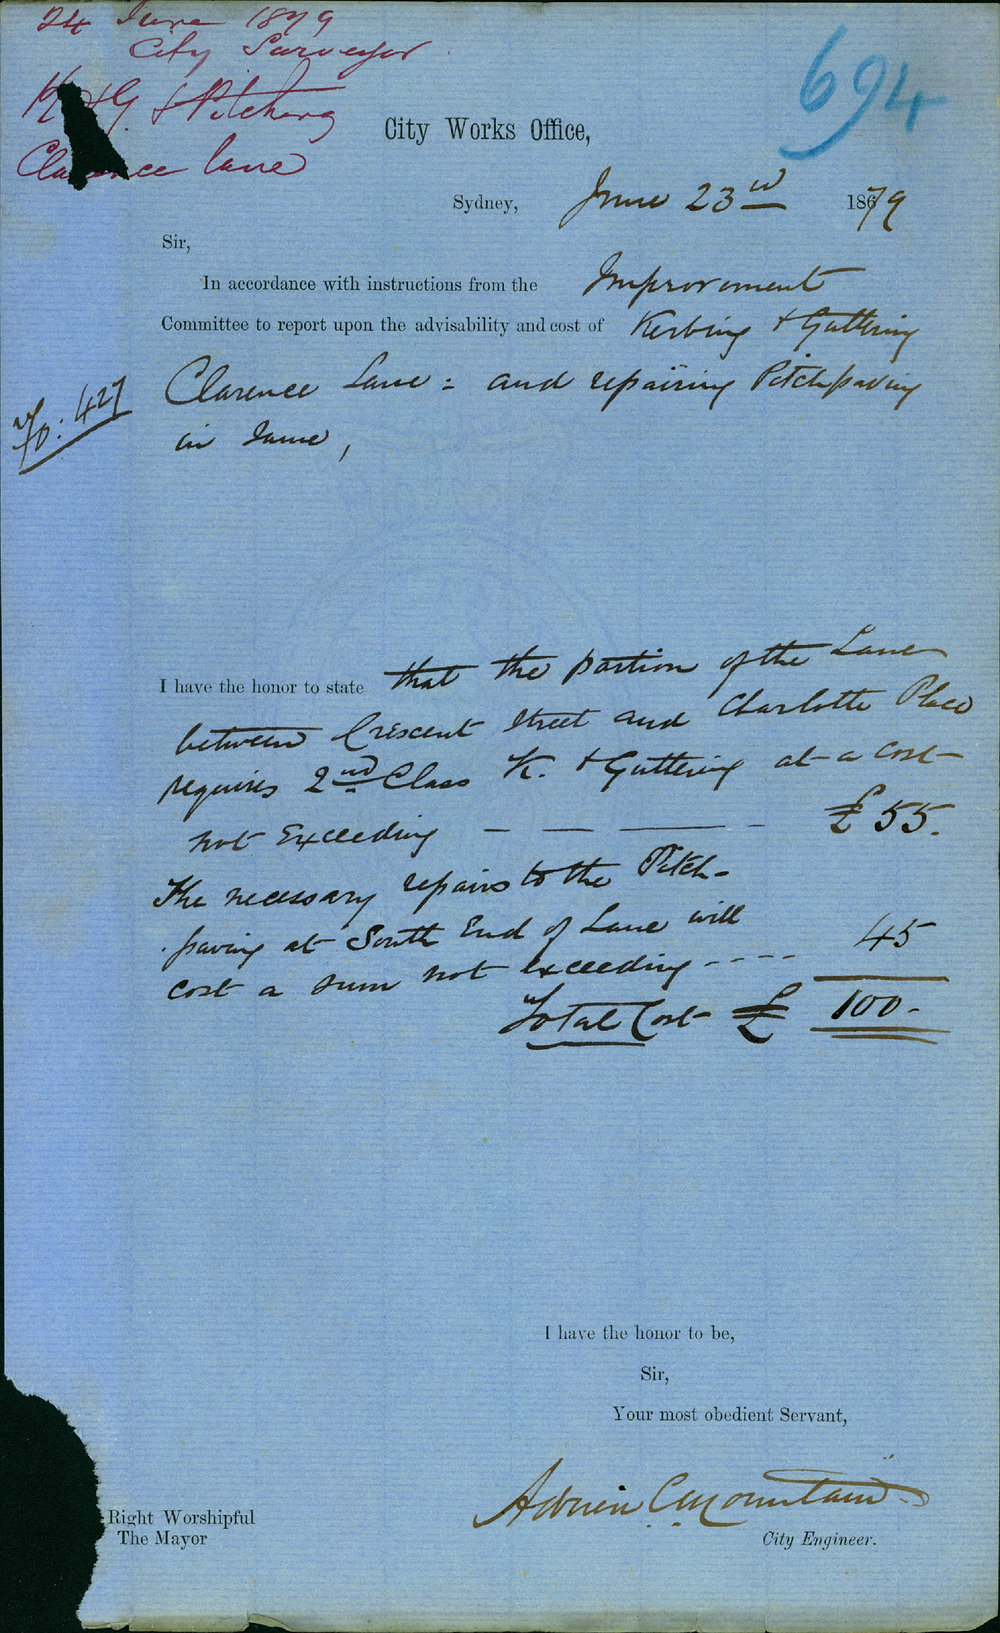 24 June 1879
City Surveyor
K & G & Pitching
Clarence Lane
694
City Works Office,
Sydney, June 23rd 1879
Sir,
In accordance with instructions from the Improvement
Committee to report upon the advisability and cost of Kerbing & Guttering
Clarence Lane : and repairing Pitchpaving
in same,
Fo: 427
I have the honor to state that the portion of the Lane
between Crescent Street and Charlotte Place
requires 2nd Class K. & Guttering at a cost
not Exceeding — — — - £55.
The necessary repairs to the Pitch-
paving at South End of Lane will
cost a sum not exceeding - - - - 45
Total Cost £ 100-
I have the honor to be,
Sir,
Your most obedient Servant,
Adrien C Mountain
City Engineer.
Right Worshipful
The Mayor